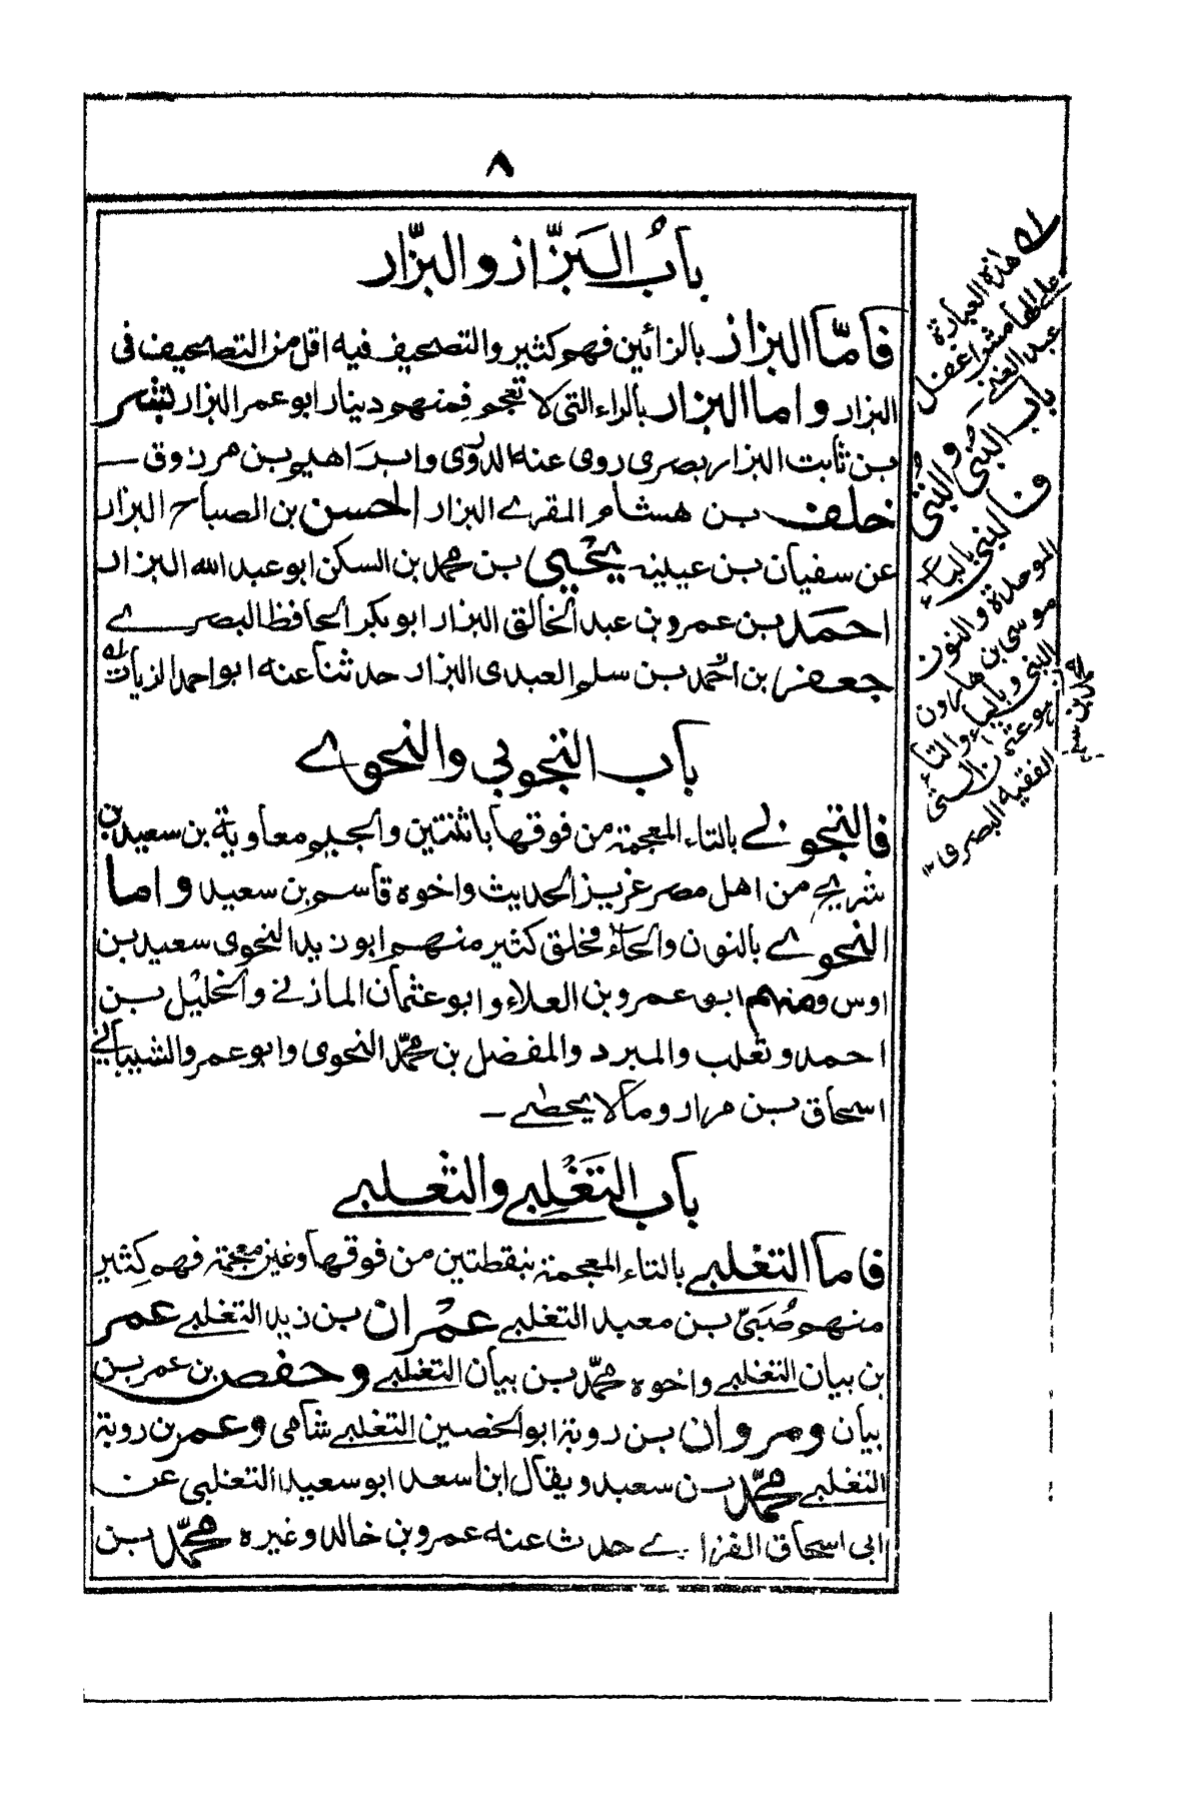 ٨
بابُ البَزَّاز والبزّار
فامّا البزاز بالزائين فهم كثير والتصحيف فيه اقل من التصحيف فى
البزار واما البزار بالراء التى لا تعجم فمنهم دينار ابو عمر البزار بشر
بن ثابت البزار بصرى روى عنه الدورى وابراهيم بن مرزوق
خلف بن هشام المقرے البزار الحسن بن الصباح البزار
عن سفيان بن عيينه يحيى بن محمد بن السكن ابو عبد الله البزار
احمد بن عمرو بن عبد الخالق البزار ابو بكر الحافظ البصرے
جعفر بن احمد بن سلم العبدى البزار حدثنا عنه ابو احمد الزيات له
باب التجوبي والنحوے
فالتجوبے بالتاء المعجمة من فوقها باثنتين والجيم معاوية بن سعيد بن
شريح من اهل مصر عزيز الحديث واخوه قاسم بن سعيد واما
النحوے بالنون والحاء فخلق كثير منهم ابو زيد النحوى سعيد بن
اوس ومنهم ابو عمرو بن العلاء وابو عثمان المازنے والخليل بن
احمد وثعلب والمبرد والمفضل بن محمّد النحوى وابو عمرو الشيبانے
اسحاق بن مرار ومالا يحصے ــ
باب التَغْلِبے والثعلبے
فاما التغلبے بالتاء المعجمة بنقطتين من فوقها وغين معجمة فهم كثير
منهم صُبَىّ بن معبد التغلبے عمران بن زيد التغلبے عمر
بن بيان التغلبے واخوه محمّد بن بيان التغلبے وحفص بن عمر بن
بيان ومروان بن روبة ابو الحصين التغلبے شامى وعمر بن روبة
التغلبے محمّد بن سعيد ويقال ابن اسعد ابو سعيد التغلبى عن
ابى اسحاق الفزارے حدث عنه عمرو بن خالد وغيره محمّد بن
له هذه العبارة
على الهامش
عبد الغنى
باب البَنّى والبُتّى
فالبنى بالباء
الموحدة والنون
موسى بن هارون
البنى وبالباء والتاء
عثمان البتى
الفقيه البصرى ١٢